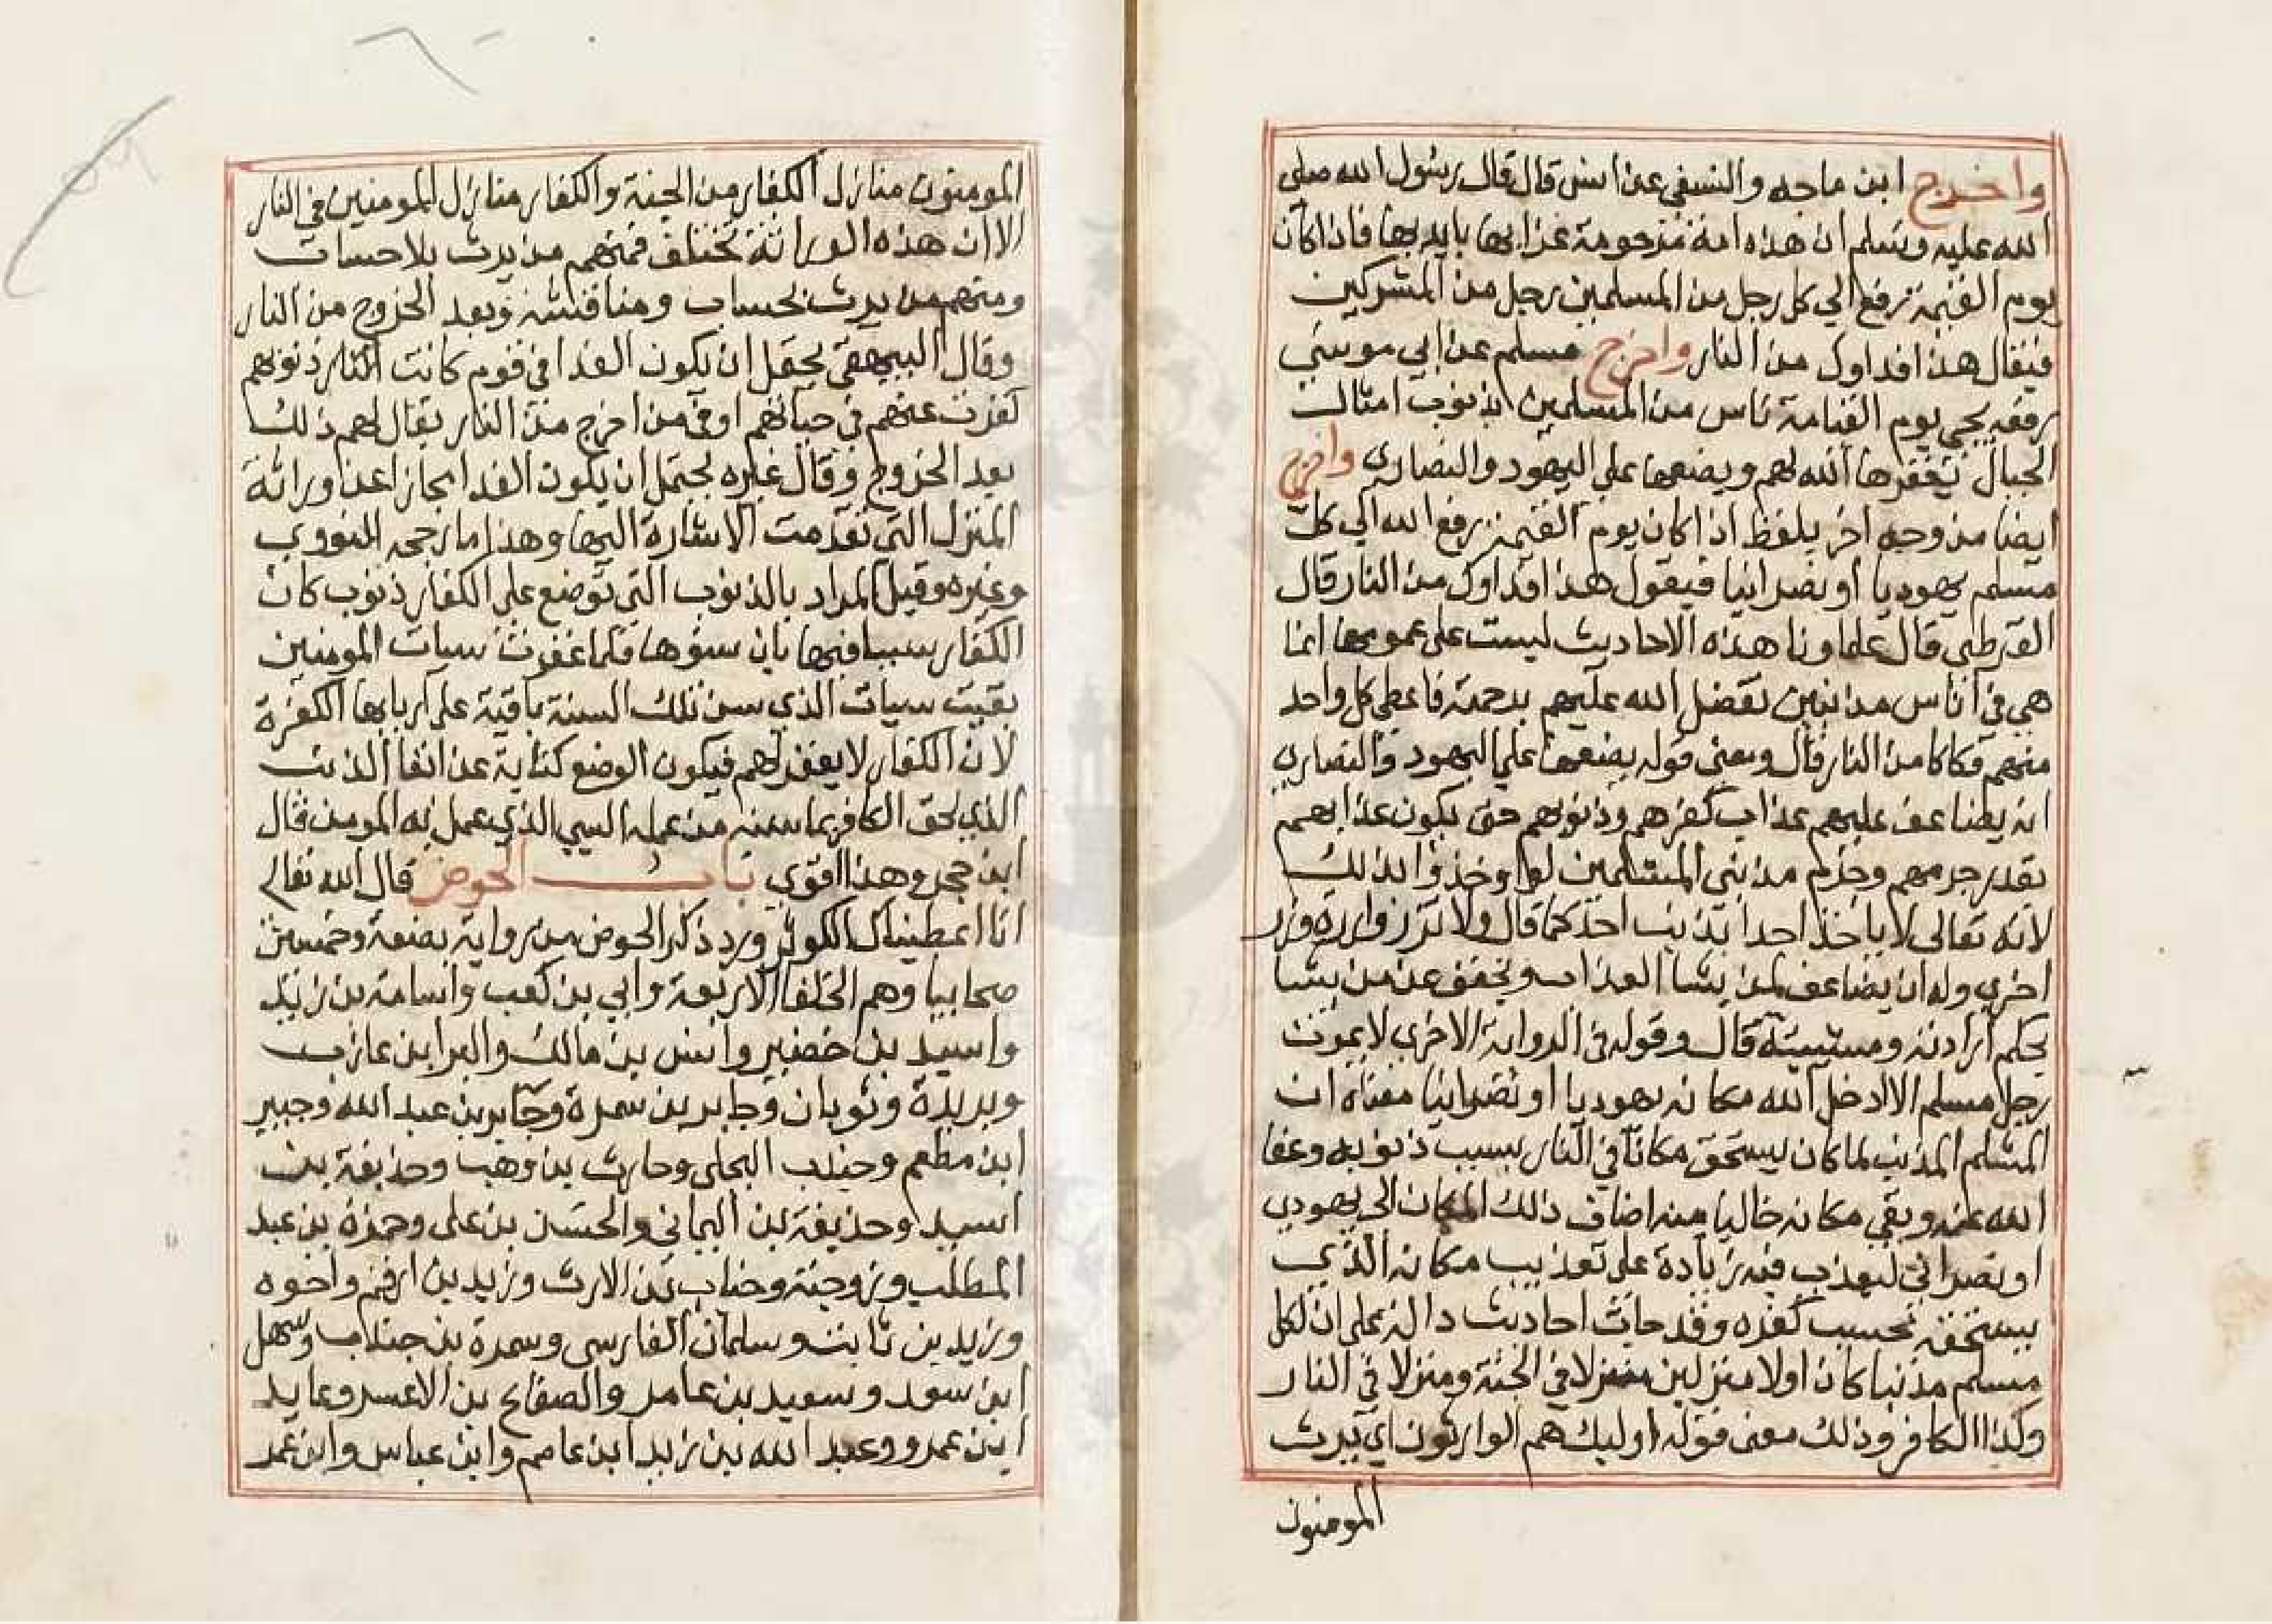 واخرج ابن ماجه والنسفي عن انس قال قال رسول الله صلى
الله عليه وسلم ان هذه امة مرحومة عذابها بايديها فاذا كان
يوم القيمة رفع الي كل رجل من المسلمين رجل من المشركين
فيقال هذا فداوك من النار واخرج مسلم عن ابي موسي
رفعه يجي يوم القيامة ناس من المسلمين بذنوب امثال
الجبال يغفرها الله لهم ويضعها علي اليهود والنصاري واخرج
ايضا من وجه اخر بلفظ اذا كان يوم القيمة رفع الله الي كل
مسلم يهوديا او نصرانيا فيقول هذا فداوك من النار قال
القرطبي قال علماونا هذه الاحاديث ليست على عمومها انما
هي في اناس مذنبين تفضل الله عليهم برحمة فاعطي كل واحد
منهم فكاكا من النار قال ومعنى قوله يضعها علي اليهود والنصاري
انه يضاعف عليهم عذاب كفرهم وذنوبهم حتى يكون عذابهم
بقدر جرمهم وجرم مذنبي المسلمين لو اوخذوا بذلك
لانه تعالى لا ياخذ احدا بذنب احد كما قال ولا تزر وازرة وزر
اخري وله ان يضاعف لمن يشا العذاب ويخفف عن من يشا
بحكم ارادته ومشيئته قال وقوله في الرواية الاخري لا يموت
رجل مسلم الا ادخل الله مكانه يهوديا او نصرانيا معناه ان
المسلم المذنب لما كان يستحق مكانا في النار بسبب ذنوبه وعفا
الله عنه وبقي مكانه خاليا منه اضاف ذلك المكان الى يهودي
او نصراني ليعذب فيه زيادة على تعذيب مكانه الذي
يستحقه بحسب كفره وقد جات احاديث دالة على ان لكل
مسلم مذنبا كان اولا منزلين منزلا في الجنة ومنزلا في النار
وكذا الكافر وذلك معنى قوله اوليك هم الوارثون اي يرث
المومنون
المومنون منازل الكفار من الجنة والكفار منازل المومنين في النار
الا ان هذه الوراثة تختلف فمنهم من يرث بلا حساب
ومنهم من يرث بحساب ومناقشة وبعد الخروج من النار
وقال البيهقي يحتمل ان يكون الفدا في قوم كانت ذنوبهم
كفرت عنهم في حياتهم او في من اخرج من النار يقال لهم ذلك
بعد الخروج وقال غيره يحتمل ان يكون الفدا مجازا عن وراثة
المنزل التي تقدمت الاشارة اليها وهذا ما رجحه النووي
وغيره وقيل المراد بالذنوب التي توضع على الكفار ذنوب كان
الكفار سببا فيها بان سنوها فلما غفرت سيات المومنين
بقيت سيات الذي سن تلك السنة باقية على اربابها الكفرة
لان الكفار لا يغفر لهم فيكون الوضع كناية عن ابقا الذنب
الذي لحق الكافر بما سنه من عمله السيي الذي عمل به المومن قال
ابن حجر وهذا اقوي باب الحوض قال الله تعالى
انا اعطيناك الكوثر ورد ذكر الحوض من رواية بضعة وخمسين
صحابيا وهم الخلفا الاربعة وابي بن كعب واسامة بن زيد
واسيد بن حضير وانس بن مالك والبرا بن عازب
وبريدة وثوبان وجابر بن سمرة وجابر بن عبد الله وجبير
ابن مطعم وجندب البجلي وحارث بن وهب وحذيفة بن
اسيد وحذيفة بن اليماني والحسن بن على وحمزة بن عبد
المطلب وزوجته وخباب بن الارت وزيد بن ارقم واخوه
وزيد بن ثابت وسلمان الفارسي وسمرة بن جندب وسهل
ابن سعد وسويد بن عامر والصنابح بن الاعسر وعايد
ابن عمرو وعبد الله بن زيد ابن عاصم وابن عباس وابن عمر